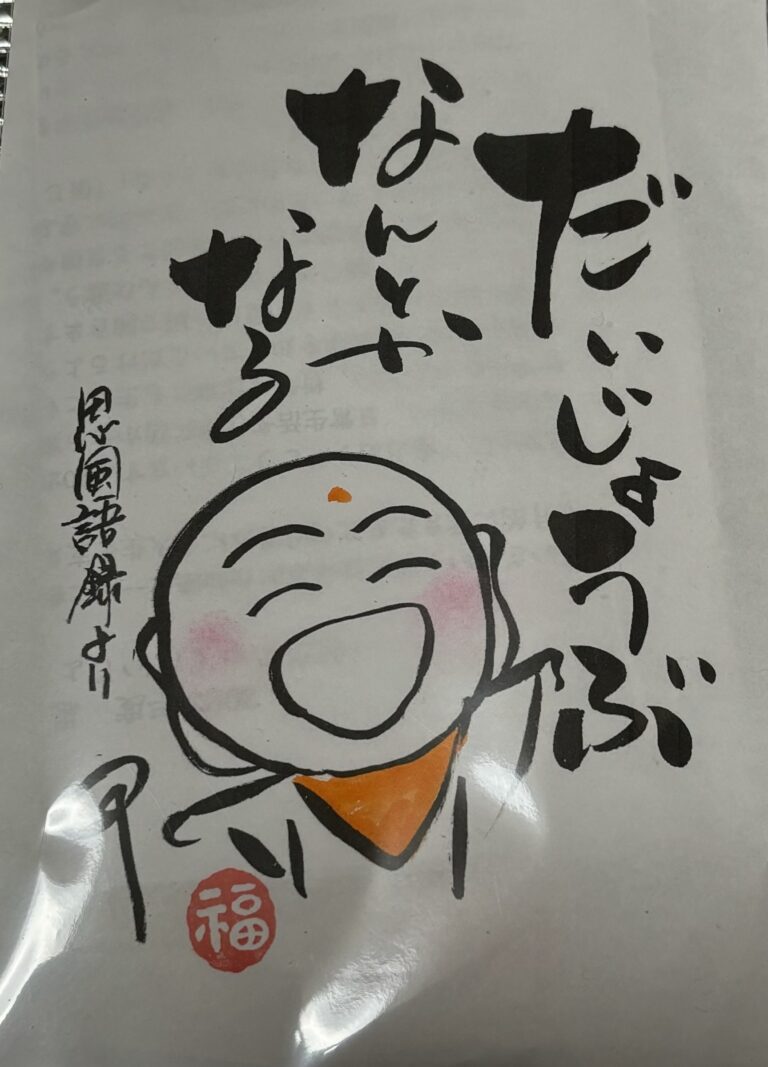 だいじょうぶ
なんとか
なる
思風語録より
福